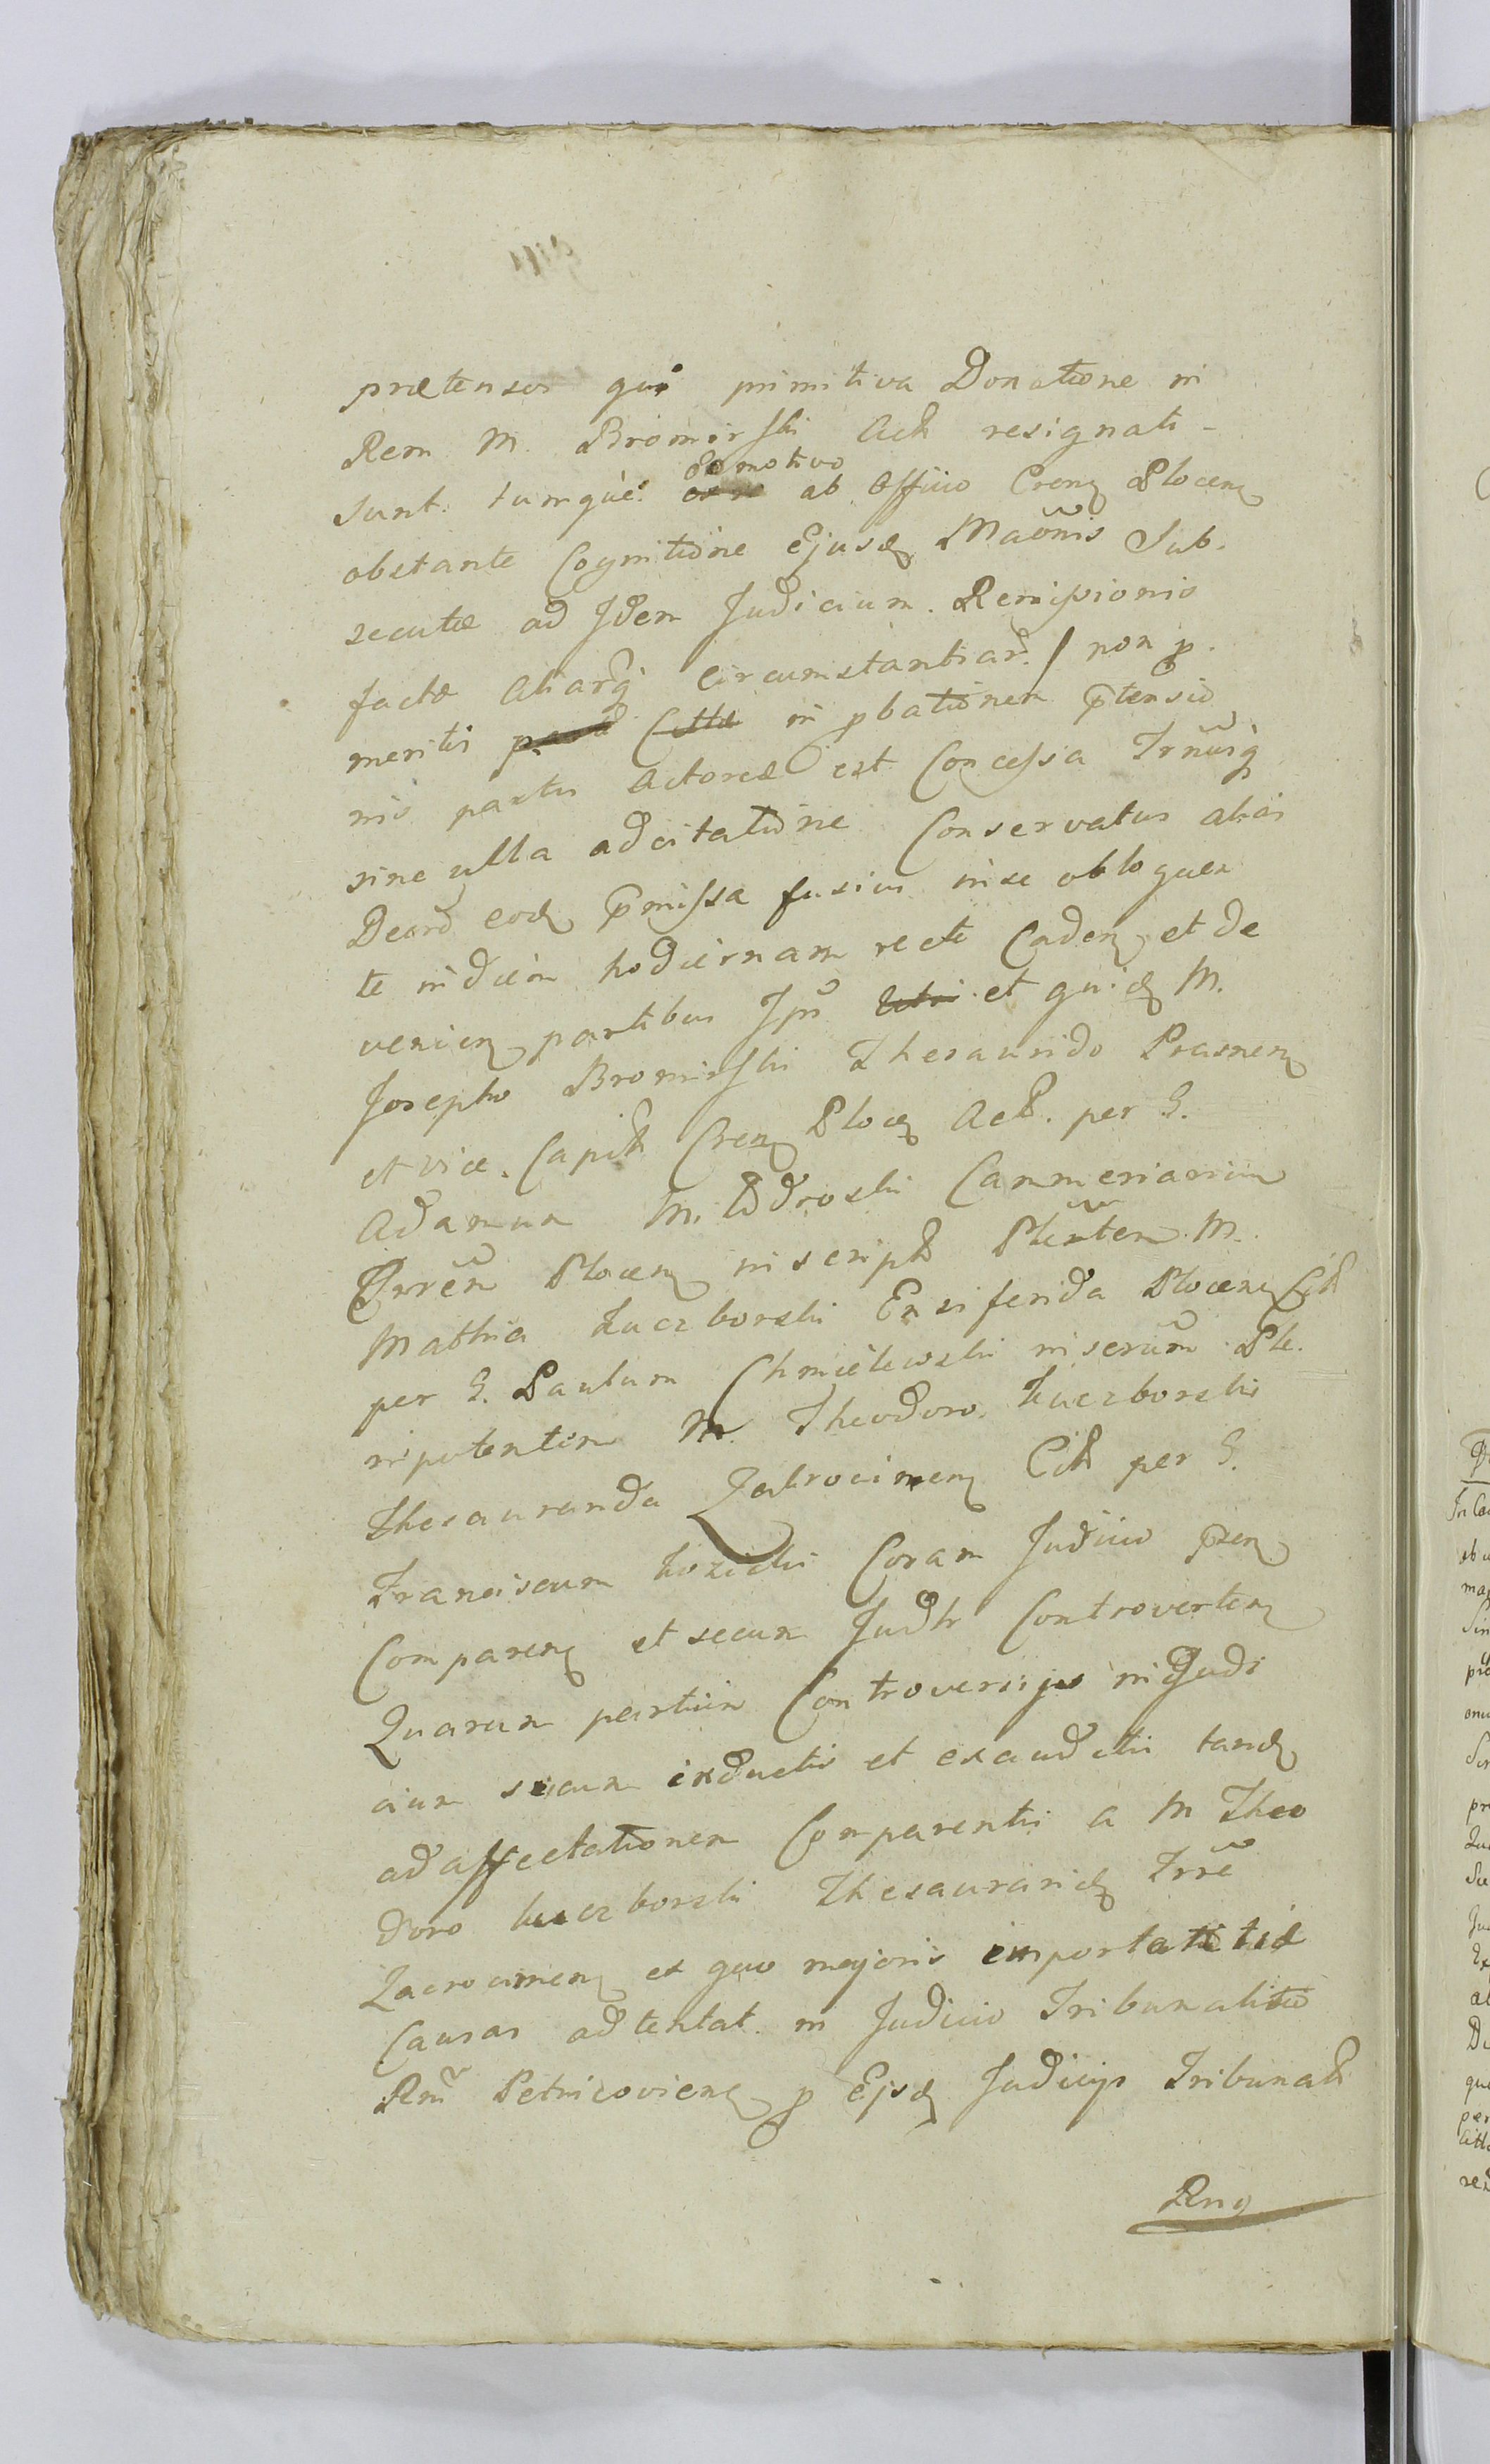 prætensos qui primitiva Donatione in
Rem M. Bromirski Act resignati-
sunt. tumque. de motivo ab Officio Cren Plocen
obstante Cognitione Ejusd Maonis Sub.
secutæ ad Idem Judicium. Remissionis
factæ aliarq circumstantiar. / non p.
meritis in pbationem ptensio
nis partis Actoreæ est Concessa Trnusq
sine ulla adcitatione Conservatus alias
Decrd eod pmissa fusius in se obloquen
te in diem hodiernam recte Caden et de
venien partibus Ipis et quid M.
Josepho Bromirski Thesaurido Prasnen
et vice. Capit Cren Ploc Act. per G.
Adamum Modroski Cammeriarium
Trrem Plocen in script Plenten M.
Mathia Kuczborski Ensiferida Plocen Cit
per G. Paulum Chmielewski in serum Ple.
nipotentem M. Theodoro. Kuczborski
Thesaurarida Zakrocimen Cit per G.
Franciscum Kozicki Coram Judicio pren
Comparen et secum Judtr Controverten
Quarum partium Controversijs in Judi
cium secum inductis et exauditis tand
ad affectationem Comparentis a M Theo
doro Kuczborski Thesaurarid Trre
Zacrocimen ex quo majoris importantiæ
Causas adtentat. in Judicio Tribunalitio
Rni Petricovien p Ejsd Judicijs Tribunal
Rng